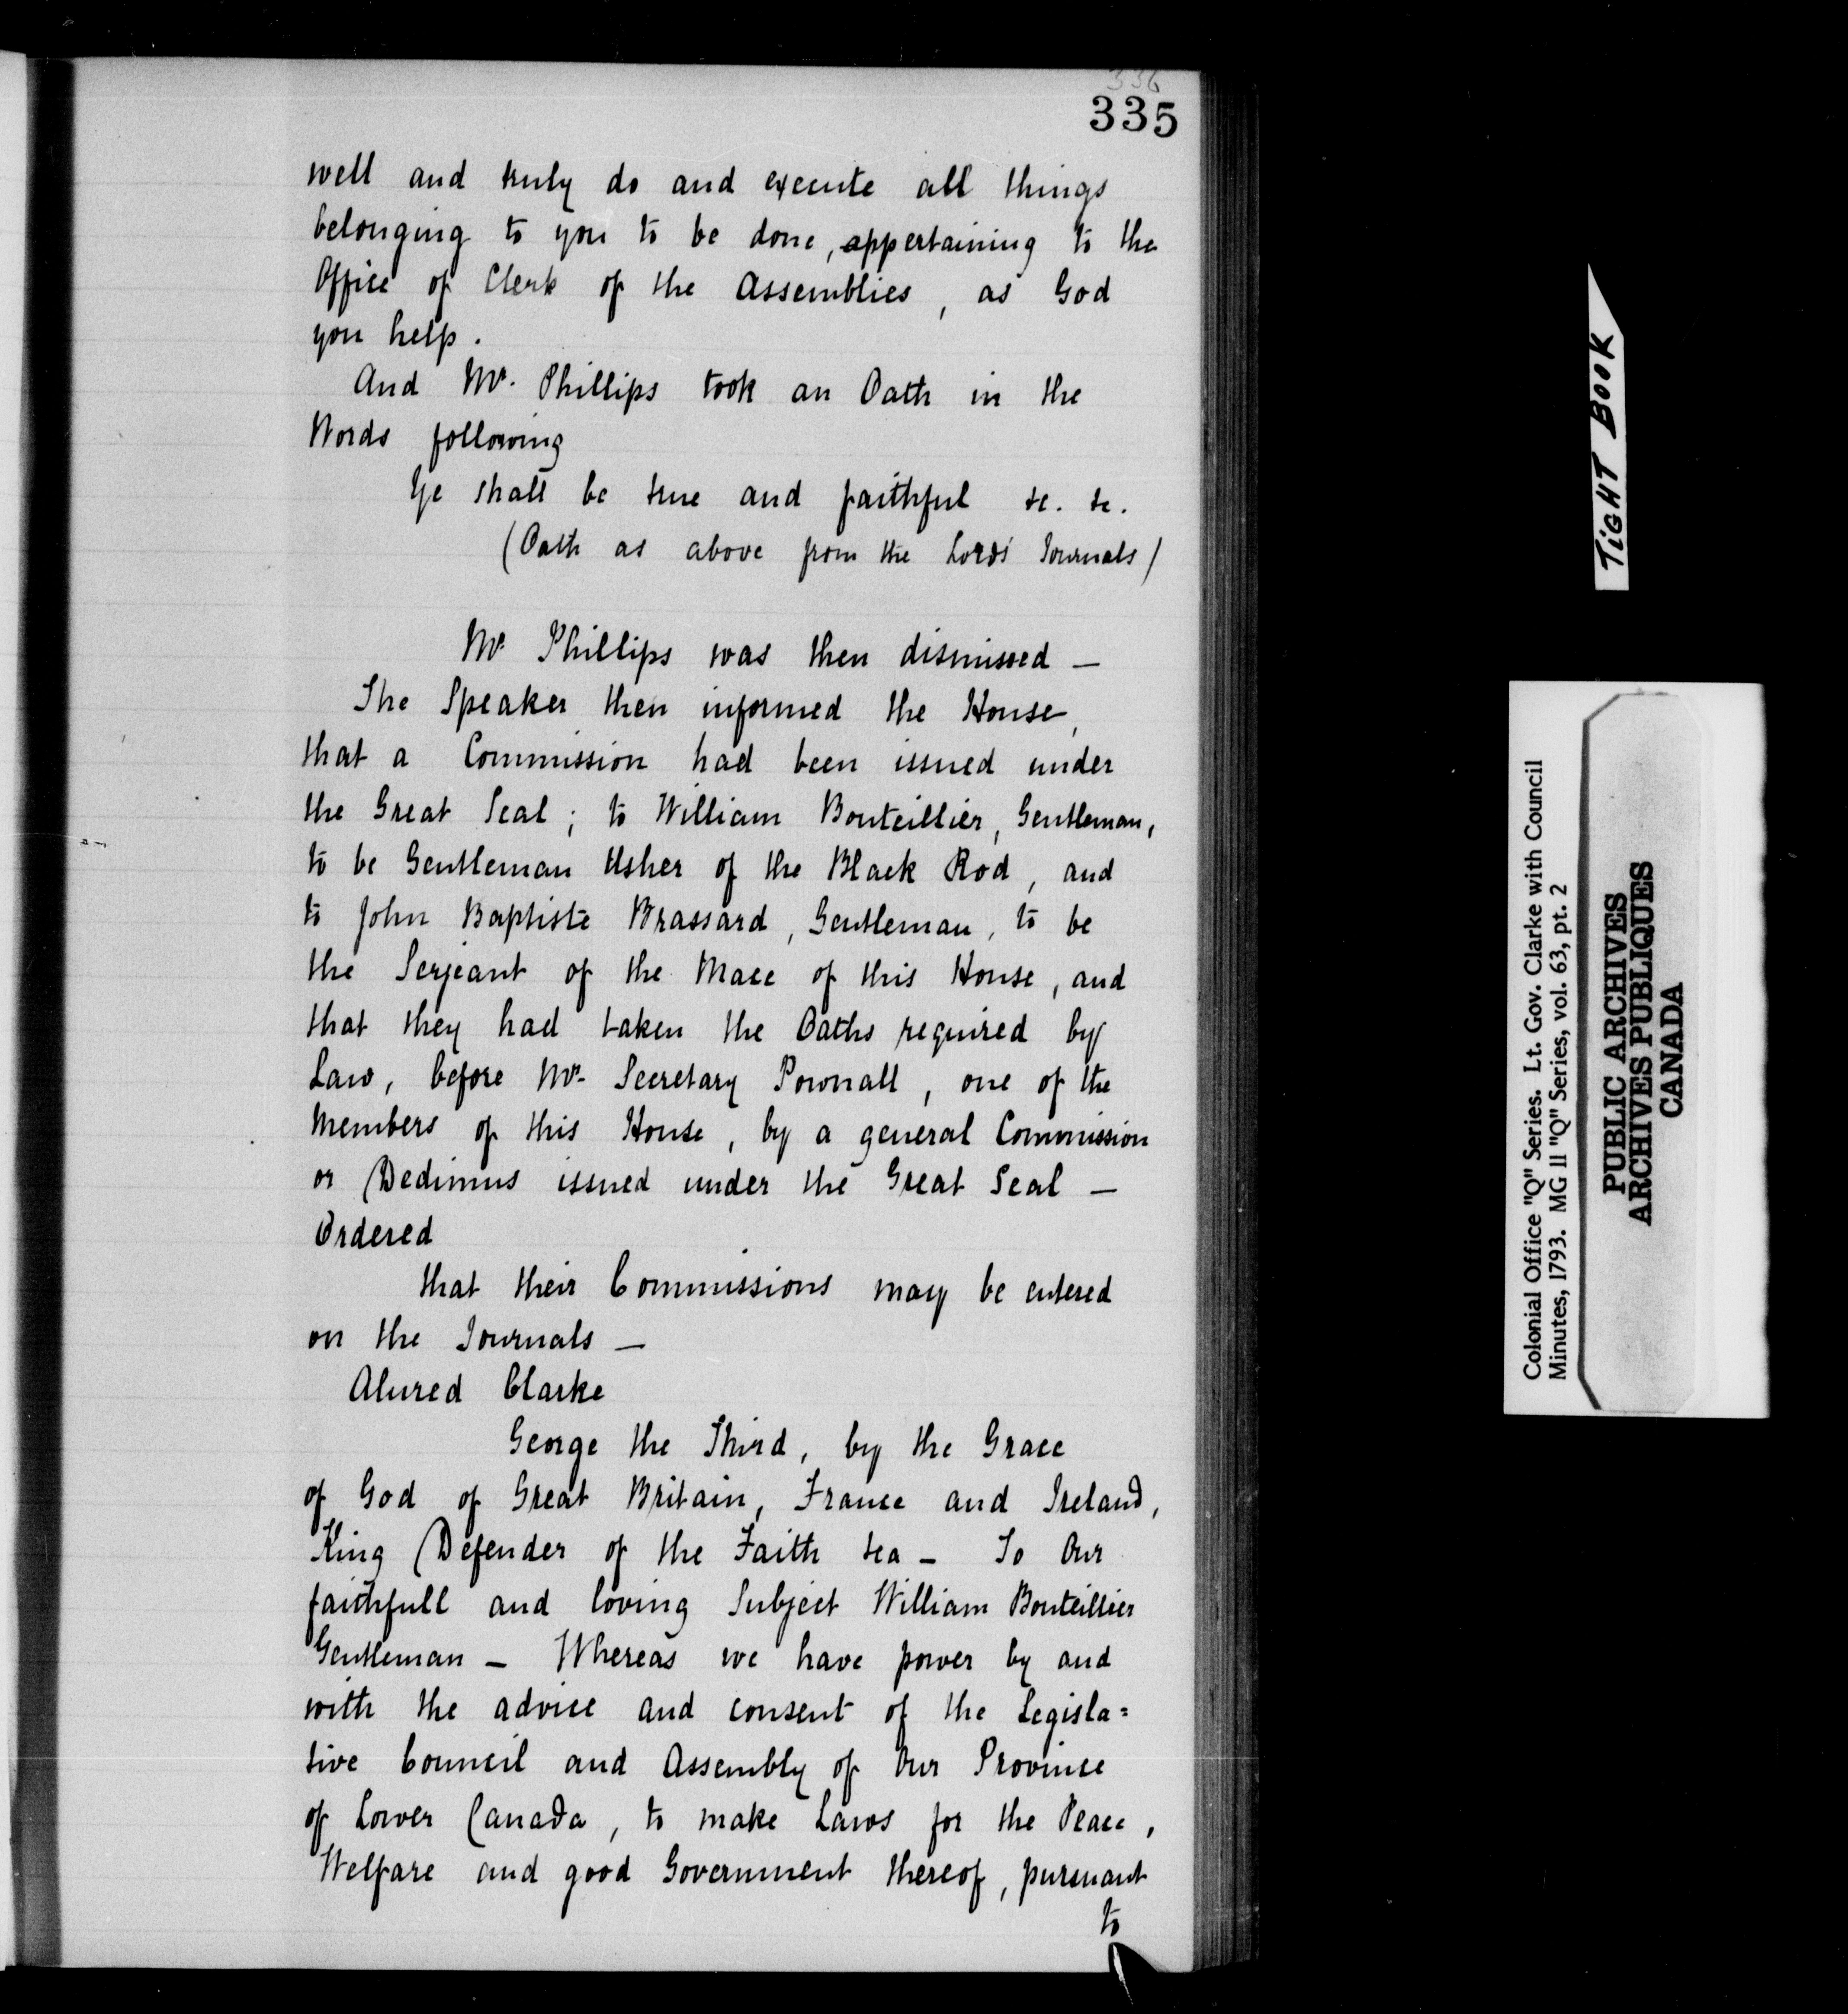 336
335
well and truly do and execute all things
belonging to you to be done, appertaining to the
Office of Clerk of the Assemblies, as God
you help.
And Mr. Phillips took an Oath in the
Words following
Ye shall be true and faithful &c. &c.
(Oath as above from the Lords' Journals)
Mr. Phillips was then dismissed —
The Speaker then informed the House,
that a Commission had been issued under
the Great Seal; to William Bouteillier, Gentleman,
to be Gentleman Usher of the Black Rod, and
to John Baptiste Brassard, Gentleman, to be
the Serjeant of the Mace of this House, and
that they had taken the Oaths required by
Law, before Mr. Secretary Pownall, one of the
Members of this House, by a general Commission
or Dedimus issued under the Great Seal —
Ordered
that their Commissions may be entered
on the Journals —
Alured Clarke
George the Third, by the Grace
of God of Great Britain, France and Ireland,
King Defender of the Faith &ca — To Our
faithfull and loving Subject William Bouteillier
Gentleman — Whereas we have power by and
with the advice and consent of the Legisla=
tive Council and Assembly of Our Province
of Lower Canada, to make Laws for the Peace,
Welfare and good Government thereof, pursuant
to
TIGHT BOOK
Colonial Office "Q" Series. Lt. Gov. Clarke with Council
Minutes, 1793. MG 11 "Q" Series, vol. 63, pt. 2
PUBLIC ARCHIVES
ARCHIVES PUBLIQUES
CANADA